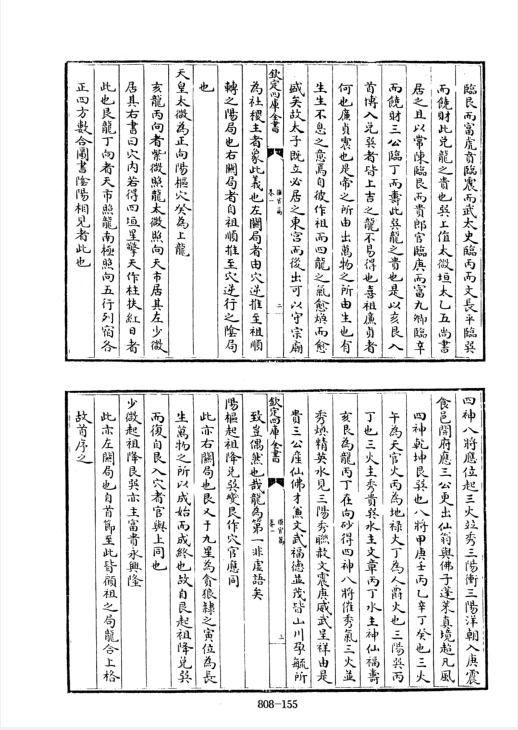 臨艮而富虎賁臨震而武太史臨丙而文長平臨巽
而饒財此兑龍之貴也巽上值太微垣太乙五尚書
居之且以常陳臨艮而貴郎官臨庚而富九卿臨辛
而饒財三公臨丁而壽此巽龍之貴也是以亥艮入
首博入兑巽者皆上吉之龍不易得也喜祖廉貞者
何也廉貞震也是帝之所由出萬物之所由生也有
生生不息之意焉自彼作祖而四龍之氣愈熾而愈
盛矣故太子既立必居之東宫而後出可以守宗廟
欽定四庫全書
卷一
二
為社稷主者象此義也左闗局者由穴逆推至祖順
轉之陽局也右闗局者自祖順推至穴逆行之陰局
也
天皇太微為正向陽樞穴癸為上龍
亥龍丙向者紫微照龍太微照向天市居其左少微
居其右書曰穴内若得四垣星擎天作柱扶紅日者
此也艮龍丁向者天市照龍南極照向五行列宿各
正四方數合圖書陰陽相見者此也
四神八將應位起三火竝秀三陽衝三陽洋朝入庚震
食邑開府應三公更出仙翁與佛子蓬萊真境超凡風
四神乾坤艮巽也八將甲庚壬丙乙辛丁癸也三火
午為天官火丙為地禄火丁為人爵火也三陽巽丙
丁也三火主秀貴巽水主文章丙丁水主神仙福壽
亥艮為龍丙丁在向砂得四神八將催秀氣三火並
秀煥精英水見三陽秀聮敭文震庚威武呈祥由是
貴三公產仙佛才兼文武福德並茂皆山川孕毓所
欽定四庫全書
卷一
三
致豈偶然也哉龍為第一非虚語矣
陽樞起祖降兑巽變艮作穴官應同
此亦右闗局也艮又于九星為貪狼隸之寅位為長
生萬物之所以成始而成終也故自艮起祖降兑巽
而復自艮入穴者官與上同也
少微起祖降艮巽亦主富貴永興隆
此亦左闗局也自首節至此皆顧祖之局龍合上格
故首序之
808-155